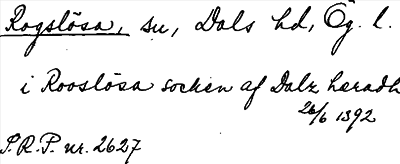 Rogslösa, sn, Dals hd, Ög. l.
i Rooslösa socken af Dalz hæradh
26/6 1392
S.R.P. nr. 2627